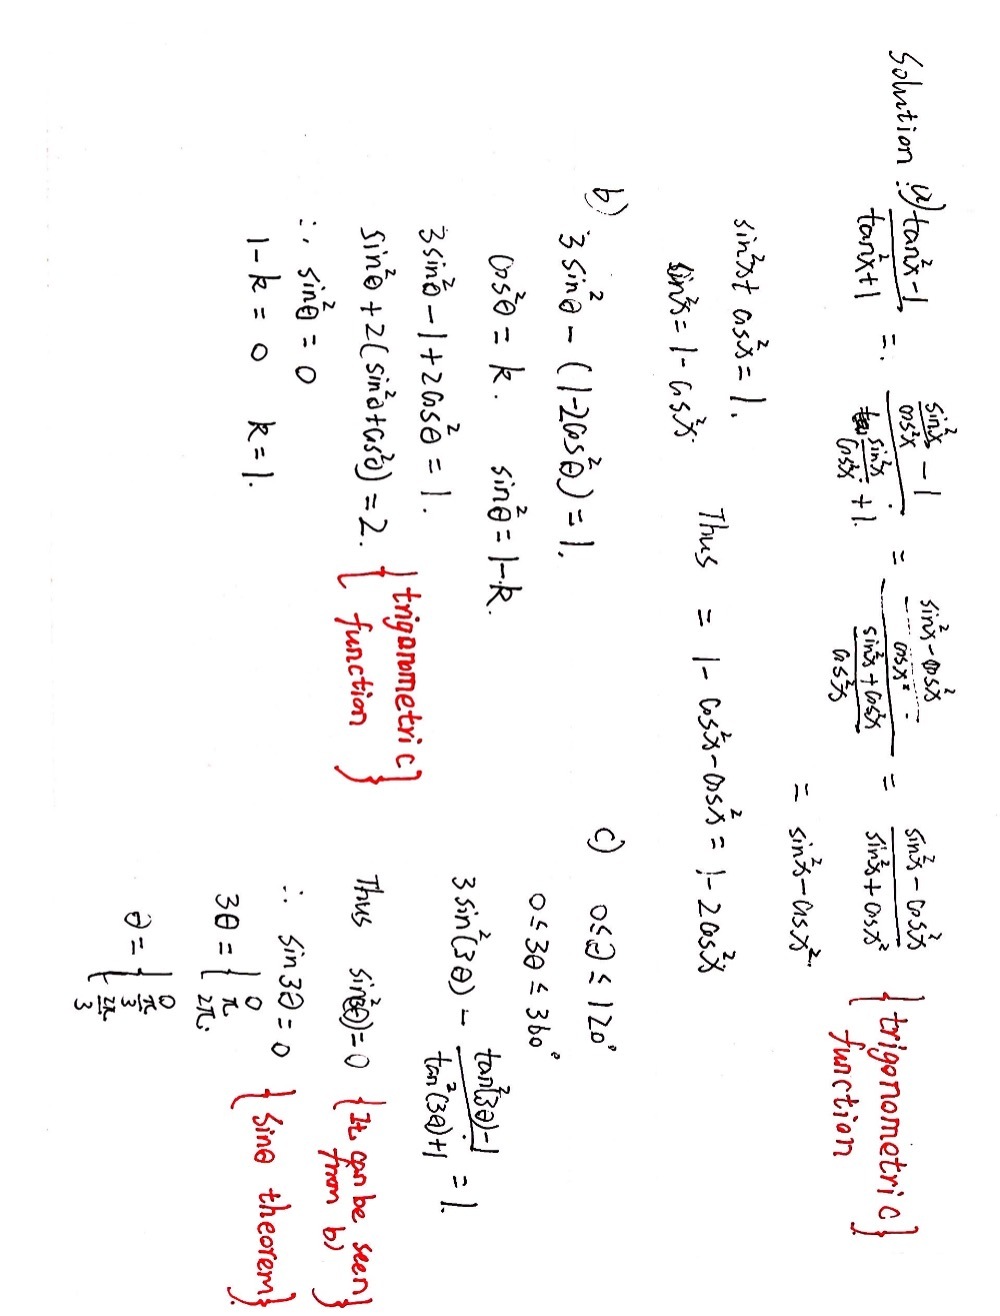 Solution : (a) (tan²x - 1)/(tan²x + 1) = (sin²x/cos²x - 1)/(sin²x/cos²x + 1) = ((sin²x - cos²x)/cos x²)/((sin²x + cos²x)/cos²x) = (sin²x - cos²x)/(sin²x + cos x²) {trigonometric function}
= sin²x - cos x².
sin²x + cos²x = 1.
sin²x = 1 - cos²x. Thus = 1 - cos²x - cos²x = 1 - 2cos²x
b) 3 sin²θ - (1-2cos²θ) = 1.
cos²θ = k. sin²θ = 1-k.
3sin²θ - 1 + 2cos²θ = 1.
sin²θ + 2(sin²θ + cos²θ) = 2. {trigonometric function}
∴ sin²θ = 0
1-k = 0 k = 1.
c) 0 ≤ θ ≤ 120°
0 ≤ 3θ ≤ 360°
3 sin²(3θ) - (tan²(3θ) - 1)/(tan²(3θ) + 1) = 1.
Thus sin²(3θ) = 0 {It can be seen from b)}
∴ sin3θ = 0 {sinθ theorem}
3θ = { 0 π 2π.
θ = { 0 π/3 2π/3